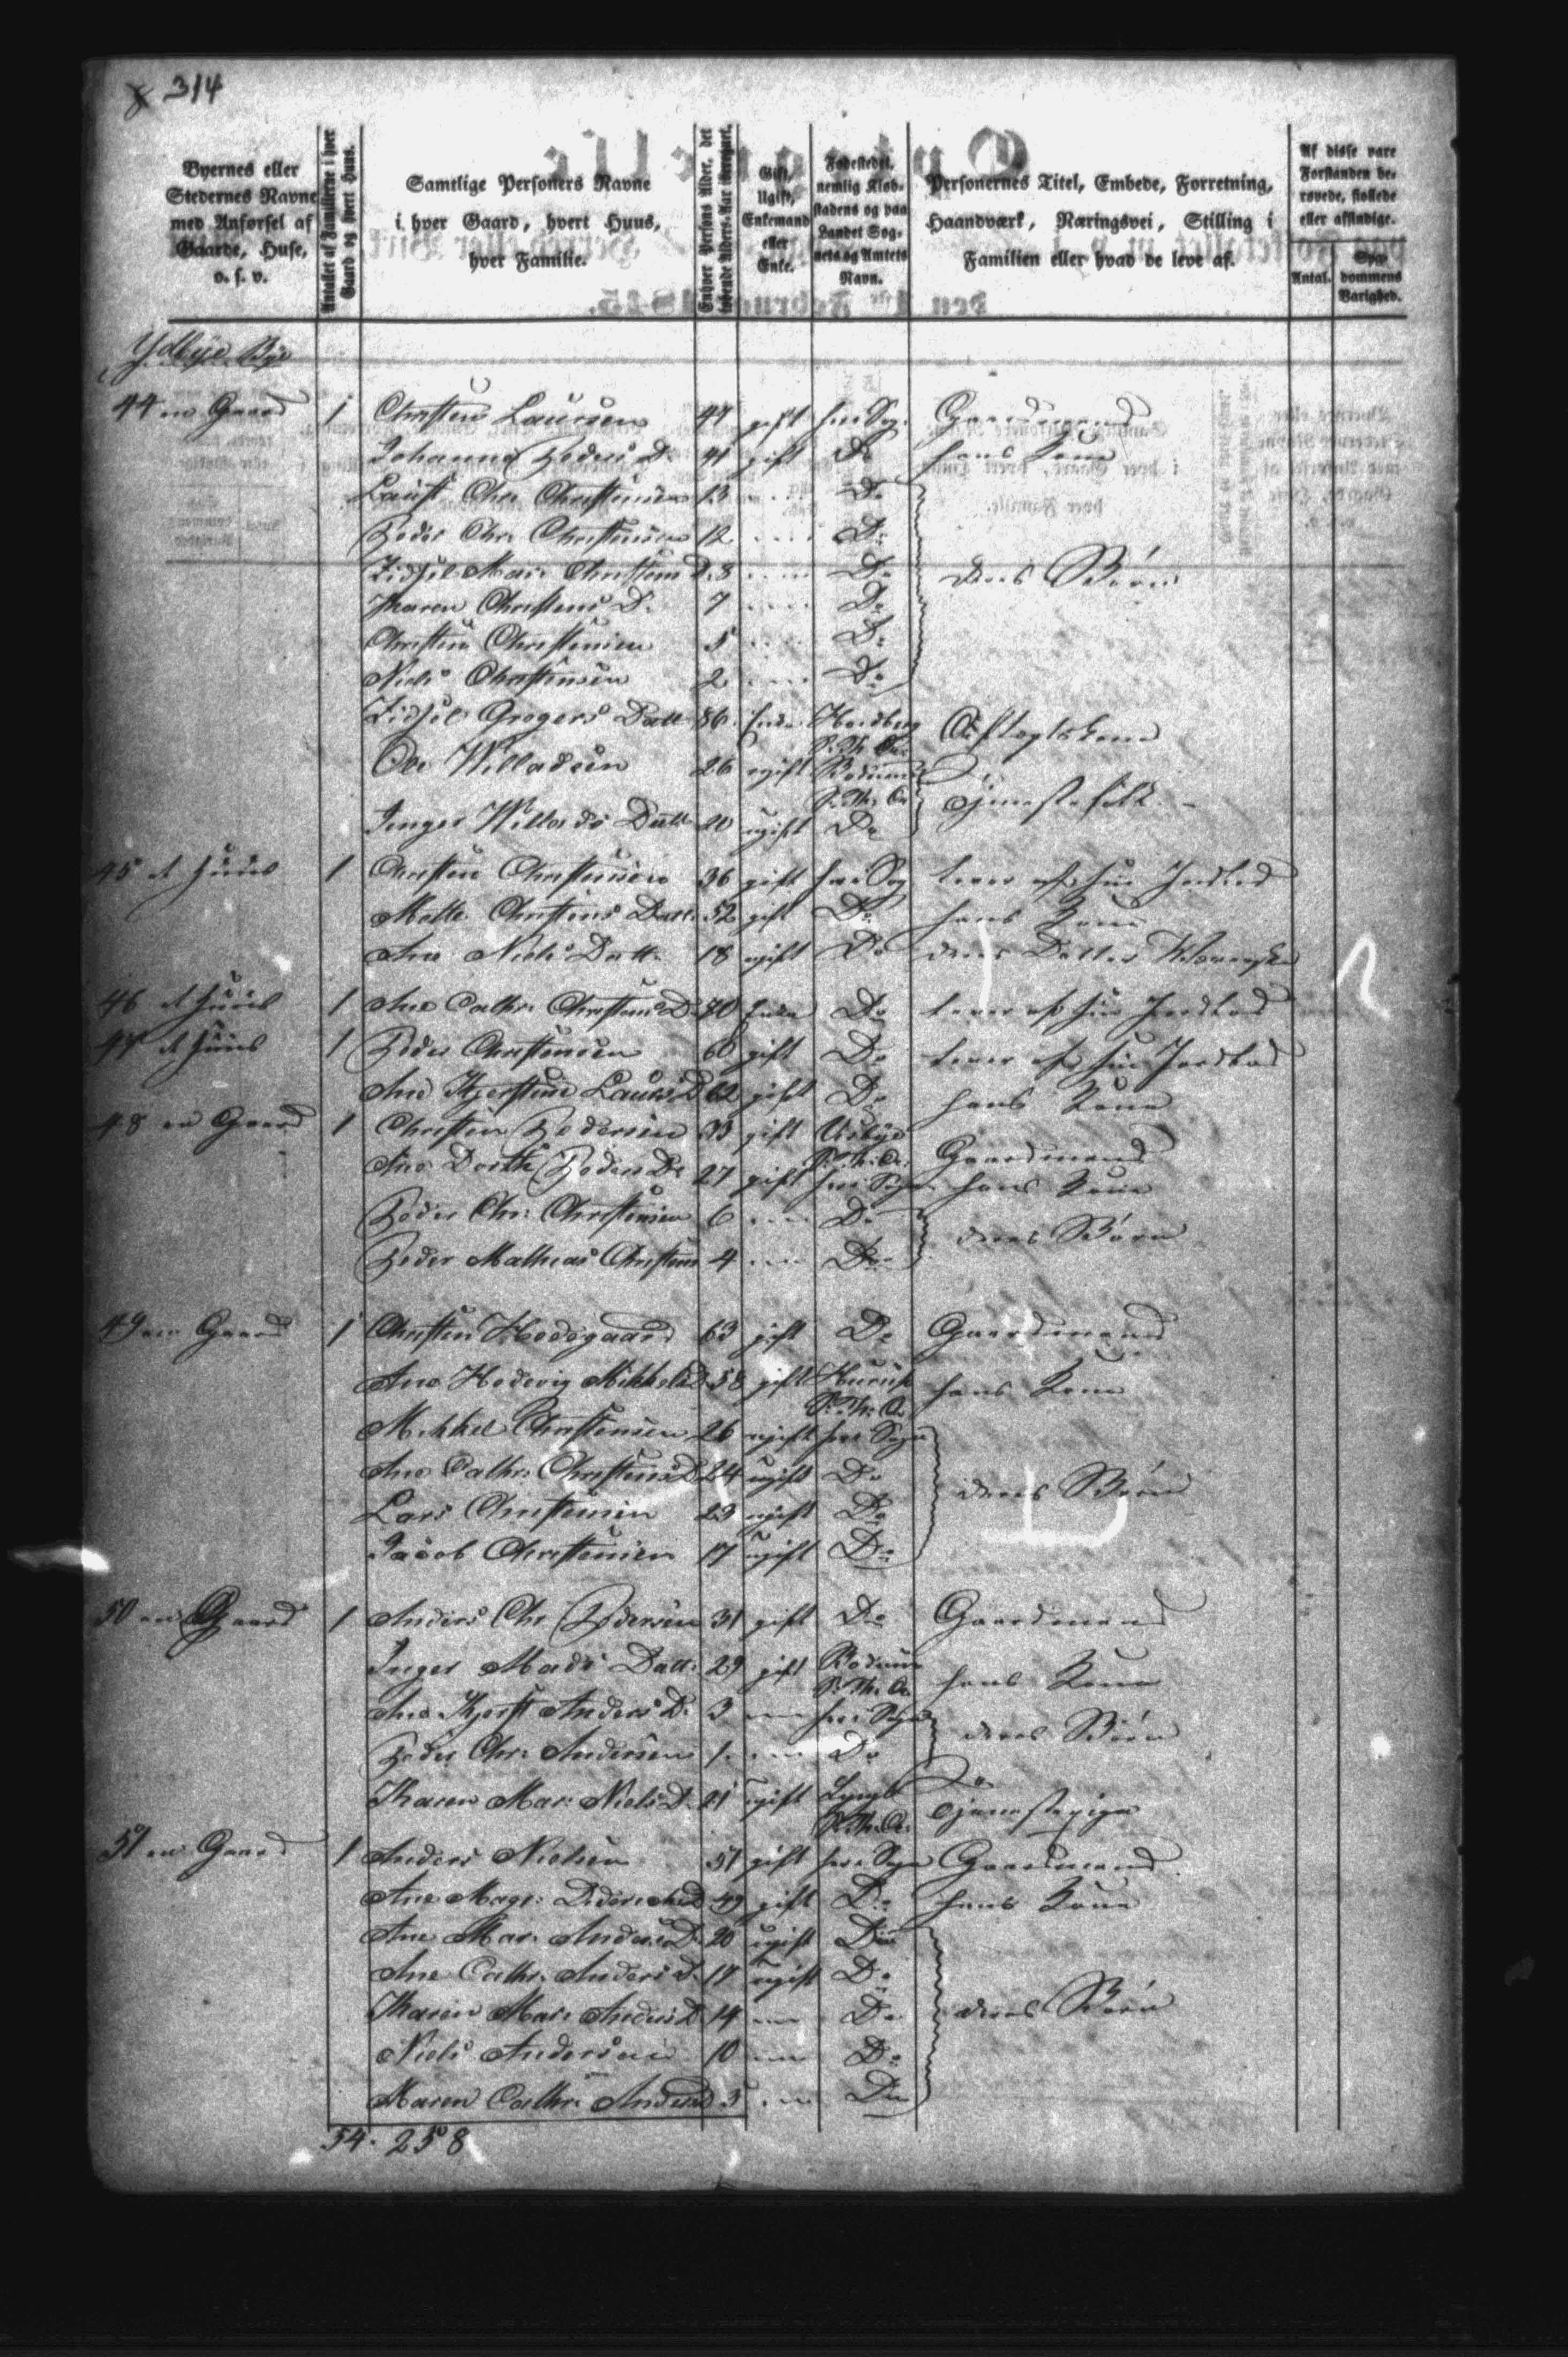 314
Byernes eller Stedernes Navne med Anførsel af Gaarde, Huse, o. s. v.
Antallet af Familierne i hver Gaard og hvert Huus.
Samtlige Personers Navne i hver Gaard, hvert Huus, hver Familie.
Enhver Persons Alder, det løbende Alders-Aar iberegnet.
Gift, Ugift, Enkemand eller Enke.
Fødestedet, nemlig Kiøbstadens og paa Landet Sognets og Amtets Navn.
Personernes Titel, Embede, Forretning, Haandværk, Næringsvei, Stilling i Familien eller hvad de leve af.
Af disse vare Forstanden berøvede, fiollede eller afsindige.
Antal.
Sygdommens Varighed.
Ydbye Bye
44 en Gaard 1 Christen Laursen 47 gift her Sog. Gaardmand
Johanna Peders D. 41 gift Do hans Kone
Laust Chr. Christensen 13 Do
Peder Chr. Christensen 12 Do
Zidsel Mar. Christens D. 8 Do deres Børn
Karen Christens D. 7 Do
Christen Christensen 5 Do
Niels Christensen 2 Do
Zidsel Gregers Datt. 86 Enke Hordberg Aftægtskone
S. Th. A.
Ole Willadsen 26 ugift Bodum
S. Th. A. Tjenestefolk
Inger Willads Datt 20 ugift Do
45 et Huus 1 Christen Christensen 36 gift her Sog lever af sin Jordlod
Mette Christens Datt. 52 gift Do hans Kone
Ane Niels Datt. 18 ugift Do deres Datter
46 et Huus 1 Ane Cathr. Christens D. 70 Enke Do lever af sin Jordlod
47 et Huus 1 Peder Christensen 60 gift Do lever af sin Jordlod
Ane Kjerstine Laurs D 62 gift Do hans Kone
48 en Gaard 1 Christen Pedersen 33 gift Visbye Gaardmand
S. Th. A.
Ane Dorthe Peders D. 27 gift her Sogn hans Kone
Peder Chr. Christensen 6 Do deres Børn
Peder Mathias Christens 4 Do
49 en Gaard 1 Christen Hedegaard 63 gift Do Gaardmand
Ane Hedevig Mikkels D. 58 gift Hurup hans Kone
S. Th. A.
Mikkel Christensen 26 ugift her Sogn
Ane Cathr. Christens D. 24 ugift Do deres Børn
Lars Christensen 23 ugift Do
Jacob Christensen 17 ugift Do
50 en Gaard 1 Anders Chr Pedersen 31 gift Do Gaardmand
Inger Mads Datt. 29 gift Bodum hans Kone
S. Th. A.
Ane Kjerst Anders D. 3 her Sogn deres Børn
Peder Chr. Andersen 1 Do
Karen Mar. Niels D. 21 ugift Lyngb Tjenestepige
S. Th. A.
51 en Gaard 1 Anders Nielsen 51 gift her Sogn Gaardmand
Ane Magr. Dideriches D 49 gift Do hans Kone
Ane Mar. Anders D. 20 ugift Do
Ane Cathr. Anders D. 17 ugift Do
Karen Mar. Anders D. 14 Do deres Børn
Niels Andersen 10 Do
Maren Cathr. Anders D 5 Do
54. 258